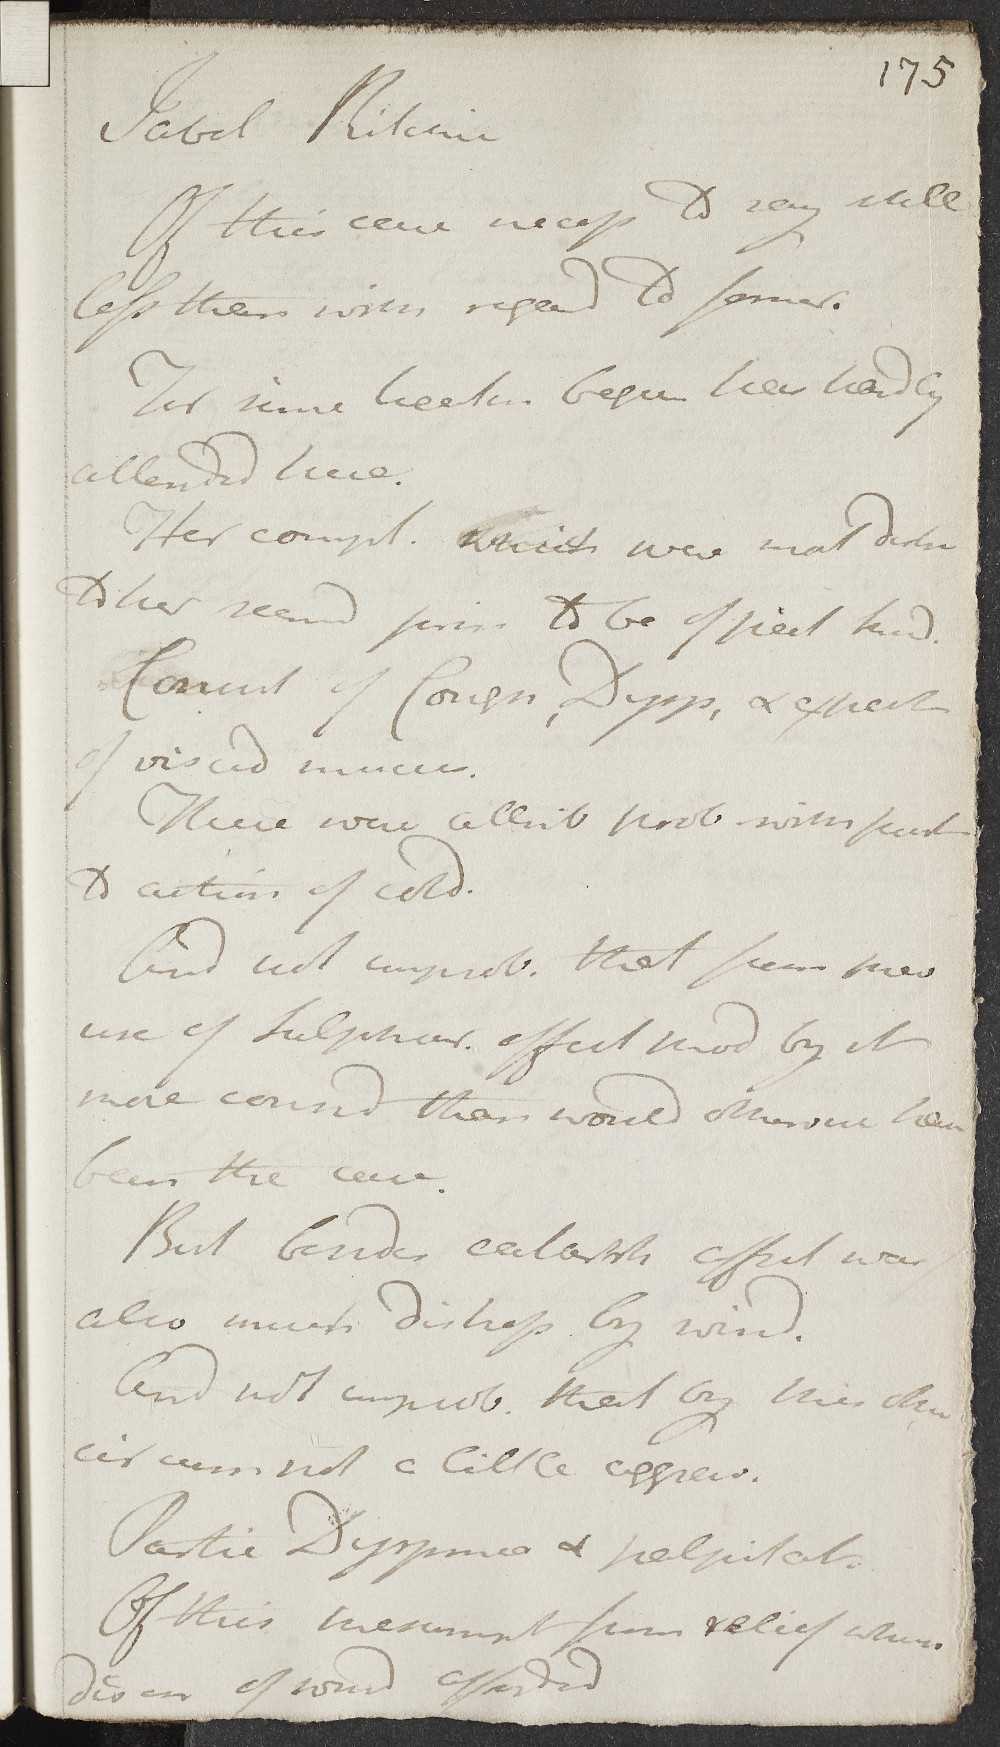 175
Isabel Ritchie
Of this case necess to say still
less than with regard to former.
For since lectur begun has hardly
attended here.
Her compl. which were most distr
to her seemd princ to be of pect kind.
Consist of Cough, Dysp, & expect
of viscid mucus.
These were attrib prob with just
to action of cold.
And not improb. that from prev
use of Sulphur. effect prod by it
more consid than would otherwise have
been the case.
But besides catarrh affect was
also much distress by wind.
And not improb. that by this other
circum not a little aggrav.
Partic Dyspnoea & palpitat.
Of this presumpt from relief when
disch of wind affordd